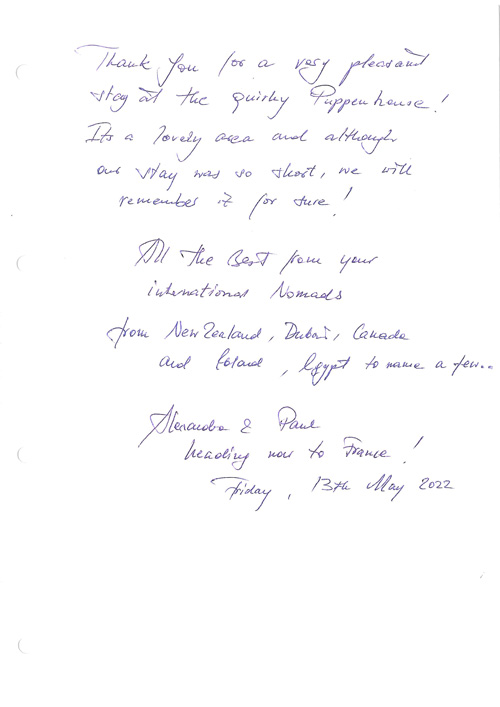 Thank you for a very pleasant
stay at the quirky Puppenhouse!
Its a lovely area and although
our stay was so short, we will
remember it for sure!
All the Best from your
international Nomads
from New Zealand, Dubai, Canada
and Poland, Egypt to name a few...
Alexandra & Paul
heading now to France!
Friday, 13th May 2022